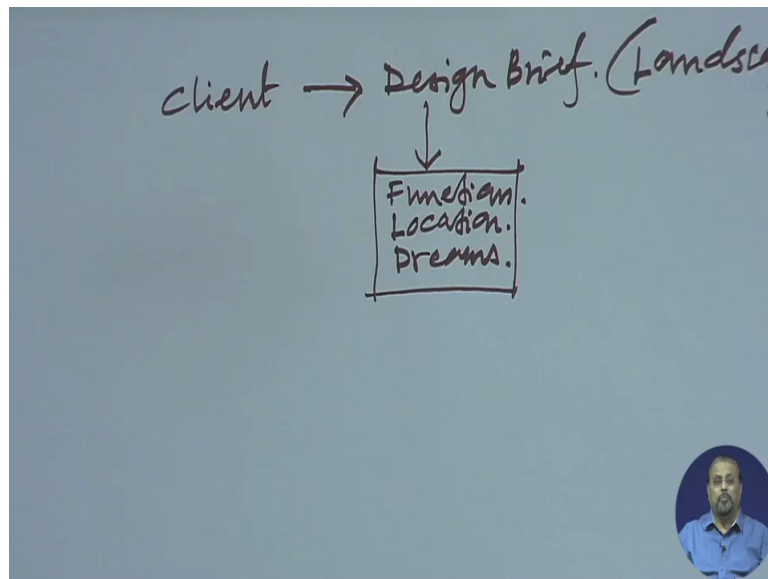 Client → Design Brief. (Landsca
Function.
Location.
Dreams.